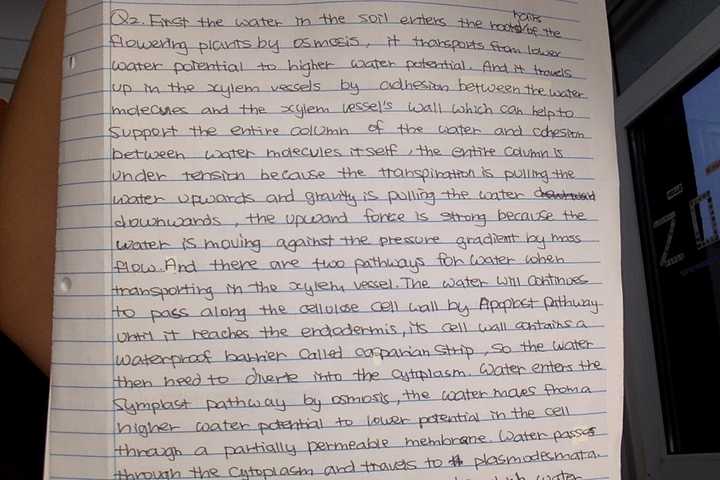 Q2. First the water in the soil enters the root hairs of the
flowering plants by osmosis, it transports from lower
water potential to higher water potential. And it travels
up in the xylem vessels by adhesion between the water
molecules and the xylem vessel's wall which can help to
support the entire column of the water and cohesion
between water molecules itself, the entire column is
under tension because the transpiration is pulling the
water upwards and gravity is pulling the water
downwards, the upward force is strong because the
water is moving against the pressure gradient by mass
flow. And there are two pathways for water when
transporting in the xylem vessel. The water will continues
to pass along the cellulose cell wall by Apoplast pathway
until it reaches the endodermis, its cell wall contains a
waterproof barrier called casparian strip, so the water
then need to diverte into the cytoplasm. Water enters the
Symplast pathway by osmosis, the water moves from a
higher water potential to lower potential in the cell
through a partially permeable membrane. Water passes
through the cytoplasm and travels to plasmodesmata.
which water
20